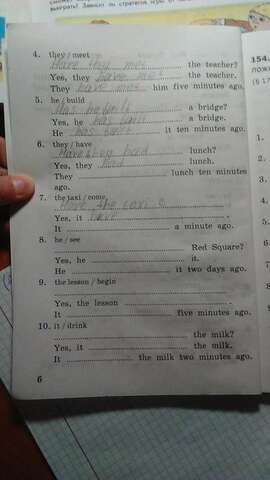 выиграть! Заметно ли стратегия игры от
4. they / meet
Have they met the teacher?
Yes, they have met the teacher.
They have met him five minutes ago.
5. he / build
Has he built a bridge?
Yes, he has built a bridge.
He has built it ten minutes ago.
6. they / have
Have they had lunch?
Yes, they had lunch.
They lunch ten minutes
ago.
7. the taxi / come
Have the taxi
Yes, it have .
It a minute ago.
8. he / see
Red Square?
Yes, he it.
He it two days ago.
9. the lesson / begin
Yes, the lesson .
It five minutes ago.
10. it / drink
the milk?
Yes, it the milk.
It the milk two minutes ago.
6
154.